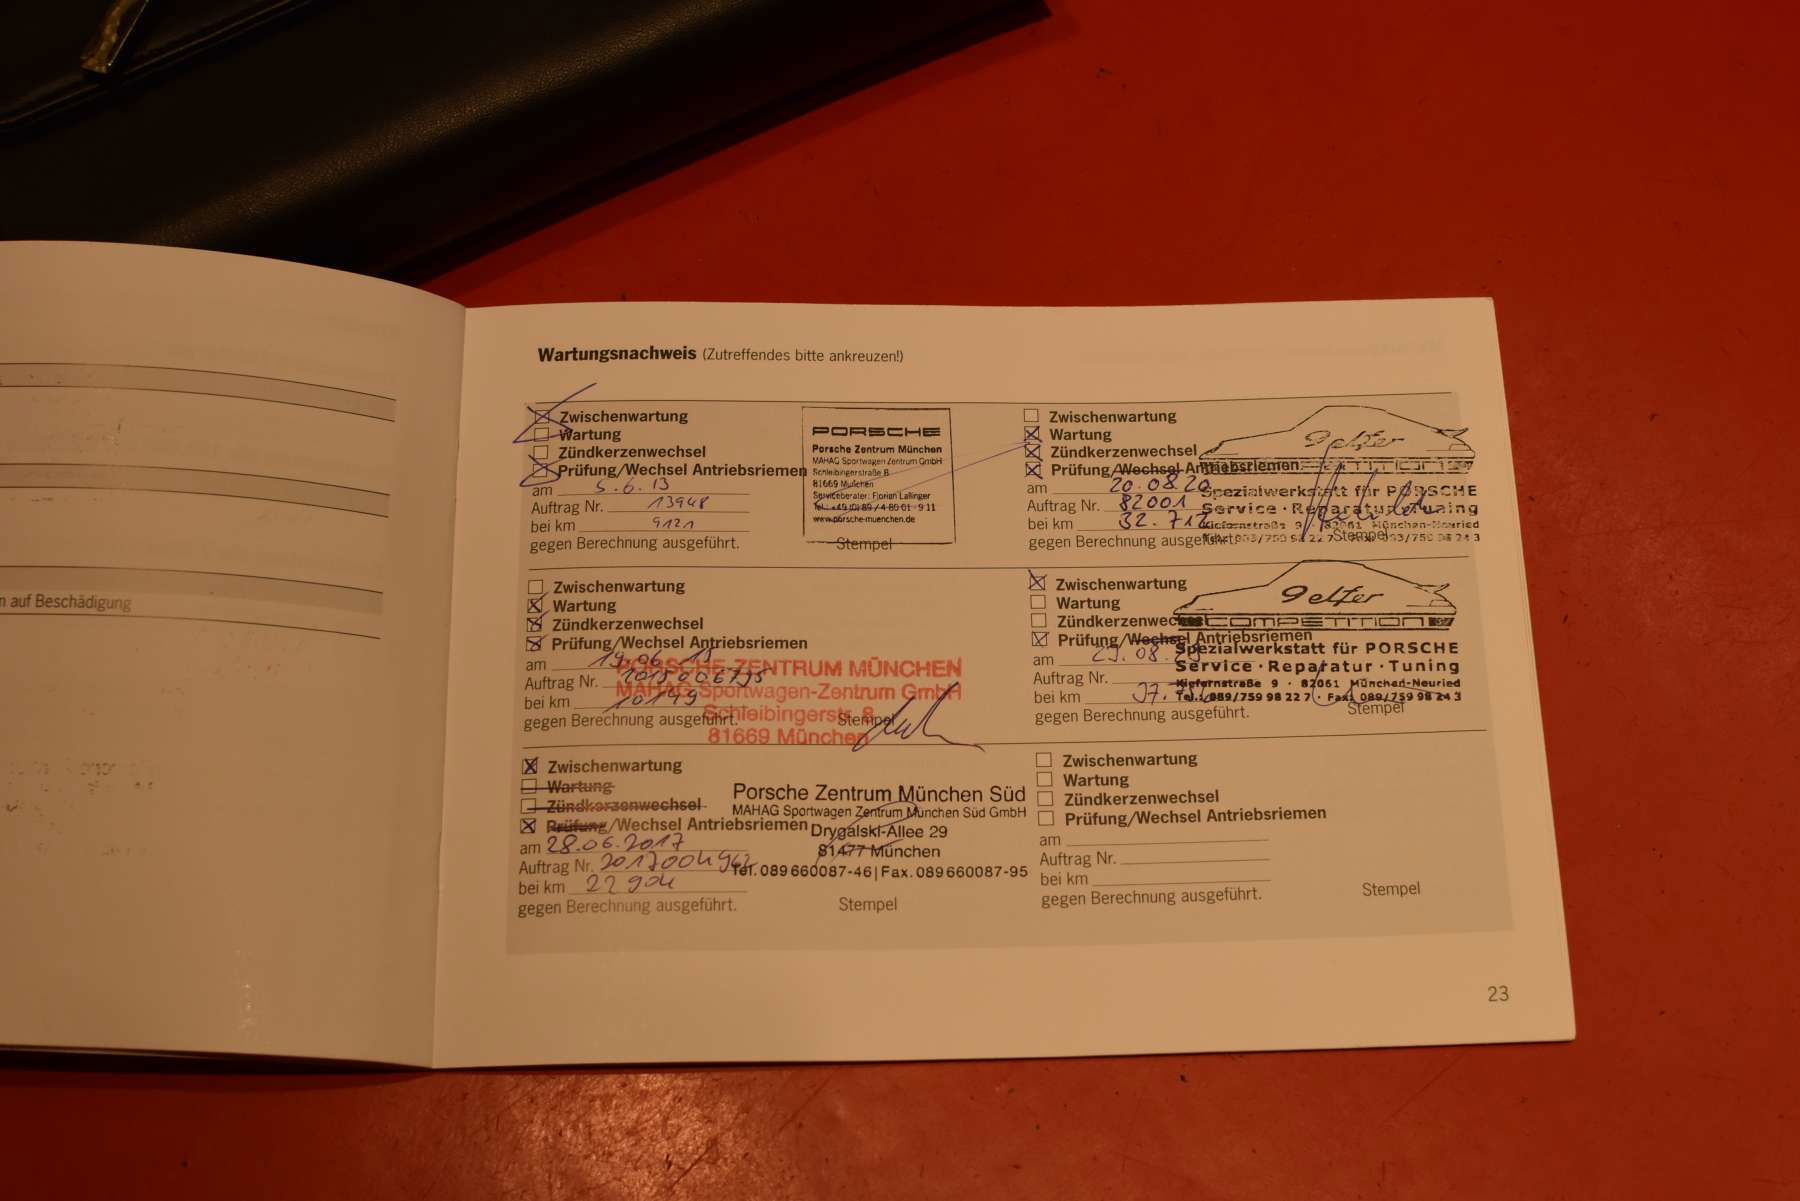 n auf Beschädigung
Wartungsnachweis (Zutreffendes bitte ankreuzen!)
Zwischenwartung
Wartung
Zündkerzenwechsel
Prüfung/Wechsel Antriebsriemen
am 5.6.13
Auftrag Nr. 13948
bei km 9121
gegen Berechnung ausgeführt.
PORSCHE
Porsche Zentrum München
MAHAG Sportwagen Zentrum GmbH
Schleibingerstraße 8
81669 München
Serviceberater: Florian Lallinger
Tel.: +49 (0) 89 / 4 80 01 - 9 11
www.porsche-muenchen.de
Stempel
Zwischenwartung
Wartung
Zündkerzenwechsel
Prüfung/Wechsel Antriebsriemen
am 19.06.15
Auftrag Nr.
bei km 10149
gegen Berechnung ausgeführt.
PORSCHE ZENTRUM MÜNCHEN
MAHAG Sportwagen-Zentrum GmbH
Schleibingerstr. 8
81669 München
Stempel
Zwischenwartung
Wartung
Zündkerzenwechsel
Prüfung/Wechsel Antriebsriemen
am 28.06.2017
Auftrag Nr. 2017004962
bei km 22904
gegen Berechnung ausgeführt.
Porsche Zentrum München Süd
MAHAG Sportwagen Zentrum München Süd GmbH
Drygalski-Allee 29
81477 München
Tel. 089 660087-46 | Fax. 089 660087-95
Stempel
Zwischenwartung
Wartung
Zündkerzenwechsel
Prüfung/Wechsel Antriebsriemen
am 20.08.20
Auftrag Nr. 82001
bei km 32.712
gegen Berechnung ausgeführt.
9elfer
COMPETITION
Spezialwerkstatt für PORSCHE
Service · Reparatur · Tuning
Kiefernstraße 9 · 82061 München-Neuried
Tel.: 089/759 98 22 7 · Fax: 089/759 98 24 3
Stempel
Zwischenwartung
Wartung
Zündkerzenwechsel
Prüfung/Wechsel Antriebsriemen
am
Auftrag Nr.
bei km
gegen Berechnung ausgeführt.
9elfer
COMPETITION
Spezialwerkstatt für PORSCHE
Service · Reparatur · Tuning
Kiefernstraße 9 · 82061 München-Neuried
Tel.: 089/759 98 22 7 · Fax: 089/759 98 24 3
Stempel
Zwischenwartung
Wartung
Zündkerzenwechsel
Prüfung/Wechsel Antriebsriemen
am
Auftrag Nr.
bei km
gegen Berechnung ausgeführt.
Stempel
23